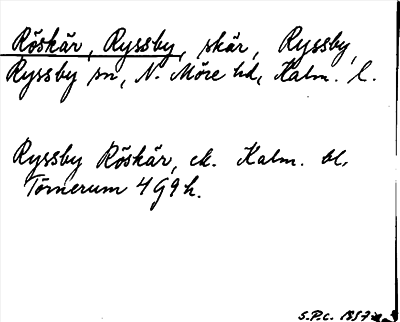 Röskär, Ryssby, skär, Ryssby,
Ryssby sn, N. Möre hd, Kalm. l.
Ryssby Röskär, ek. Kalm. bl.
Törnerum 4G9h.
S.P.C. 1957